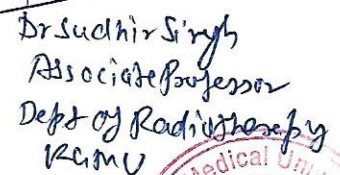 Dr Sudhir Singh
Associate Professor
Dept of Radiotherapy
KGMU
Medical Uni